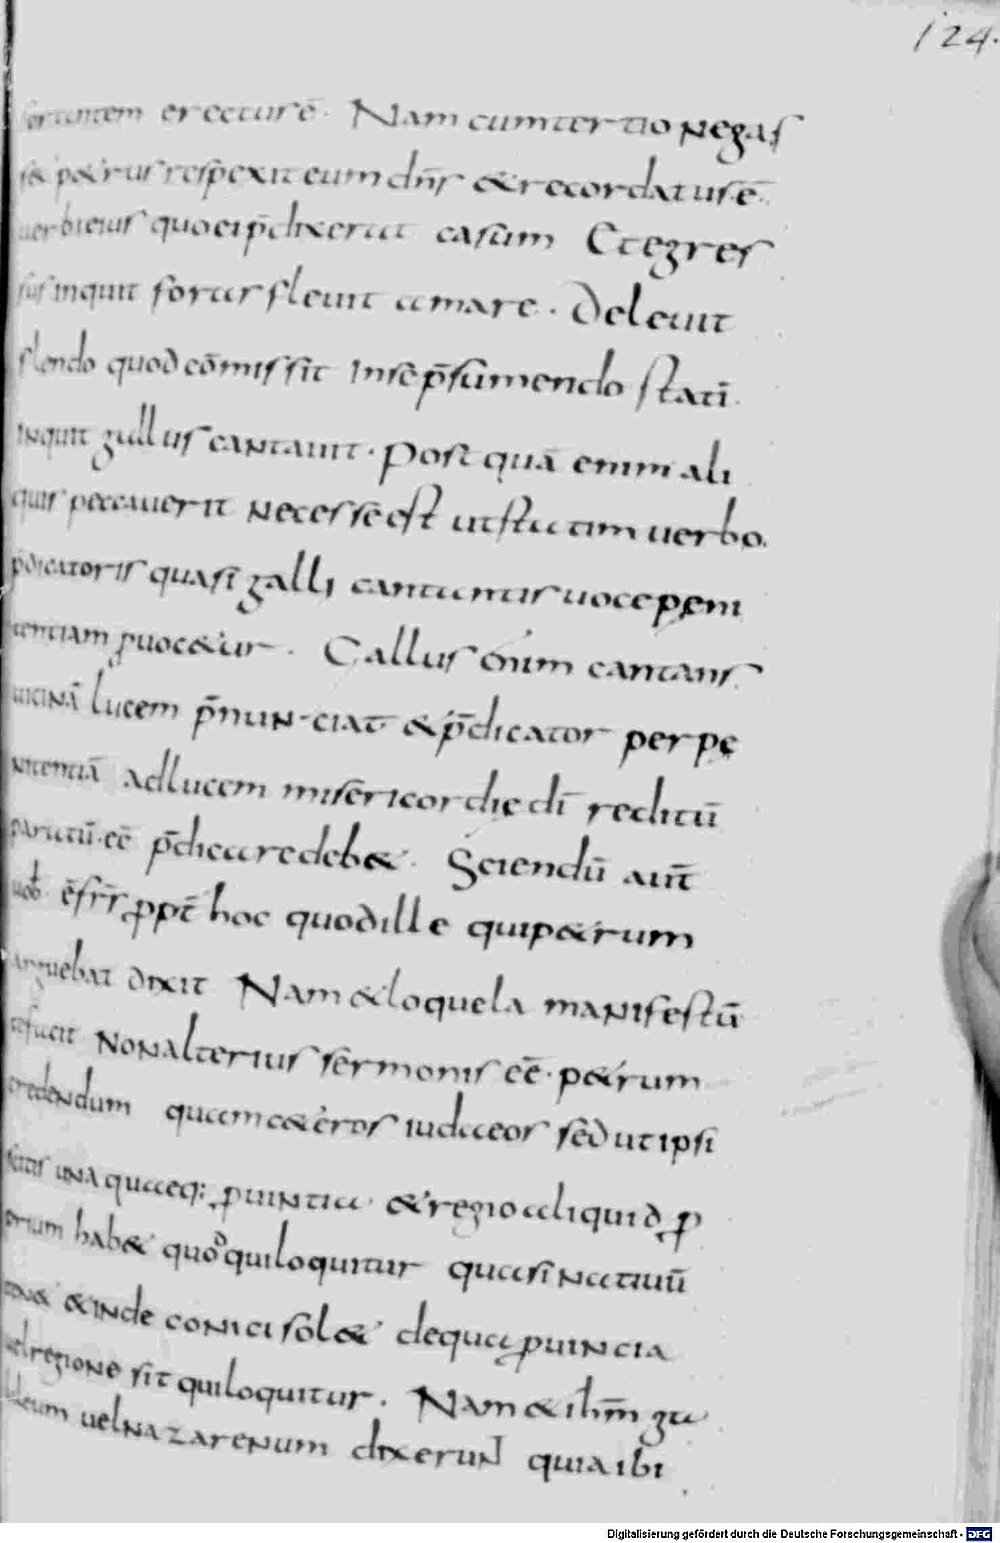 124.
erectur ē. Nam cum tertio negas
s& p&rus respexit eum dn̄s & recordatus ē.
uerbi eius quo ei p̄dixerat casum Et egres
sus inquit foras fleuit amare. Deleuit
flendo quod cōmissit In se p̄sumendo statī
inquit gallus cantauit. Post quā enim ali
quis peccauerit necesse est ut statim uerbo
p̄dicatoris quasi galli cantantis uoce peni
tentiam ꝓuoc&ur. Gallus enim cantans
uicinā lucem p̄nunciat & p̄dicator per pę
nitentiā ad lucem misericordię dī reditū
paratū. eē p̄dicare deb&. Sciendū aut̄
uob̄ ē fr̄r̄ ꝓpt̄ hoc quod ille qui p&rum
arguebat dixit Nam & loquela manifestū
te facit Non alterius sermonis eē. p&rum
credendum quam c&eros iudaeos sed ut ipsi
scitis unaquaeq; ꝓuintia & regio aliquid ꝓ
prium hab& quod qui loquitur quasi natiuū
& inde conici sol& de qua ꝓuincia
uel regione sit qui loquitur. Nam & ih̄m ga
lileum uel nazarenum dixerunt quia ibi
Digitalisierung gefördert durch die Deutsche Forschungsgemeinschaft - DFG